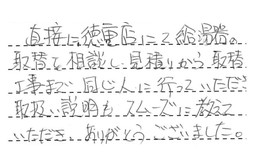 直接に、徳重店にて給湯器の
取替を相談し、見積りから、取替
工事まで、同じ人に行っていただき
取扱い説明も、スムーズに教えて
いただき、ありがとうございました。